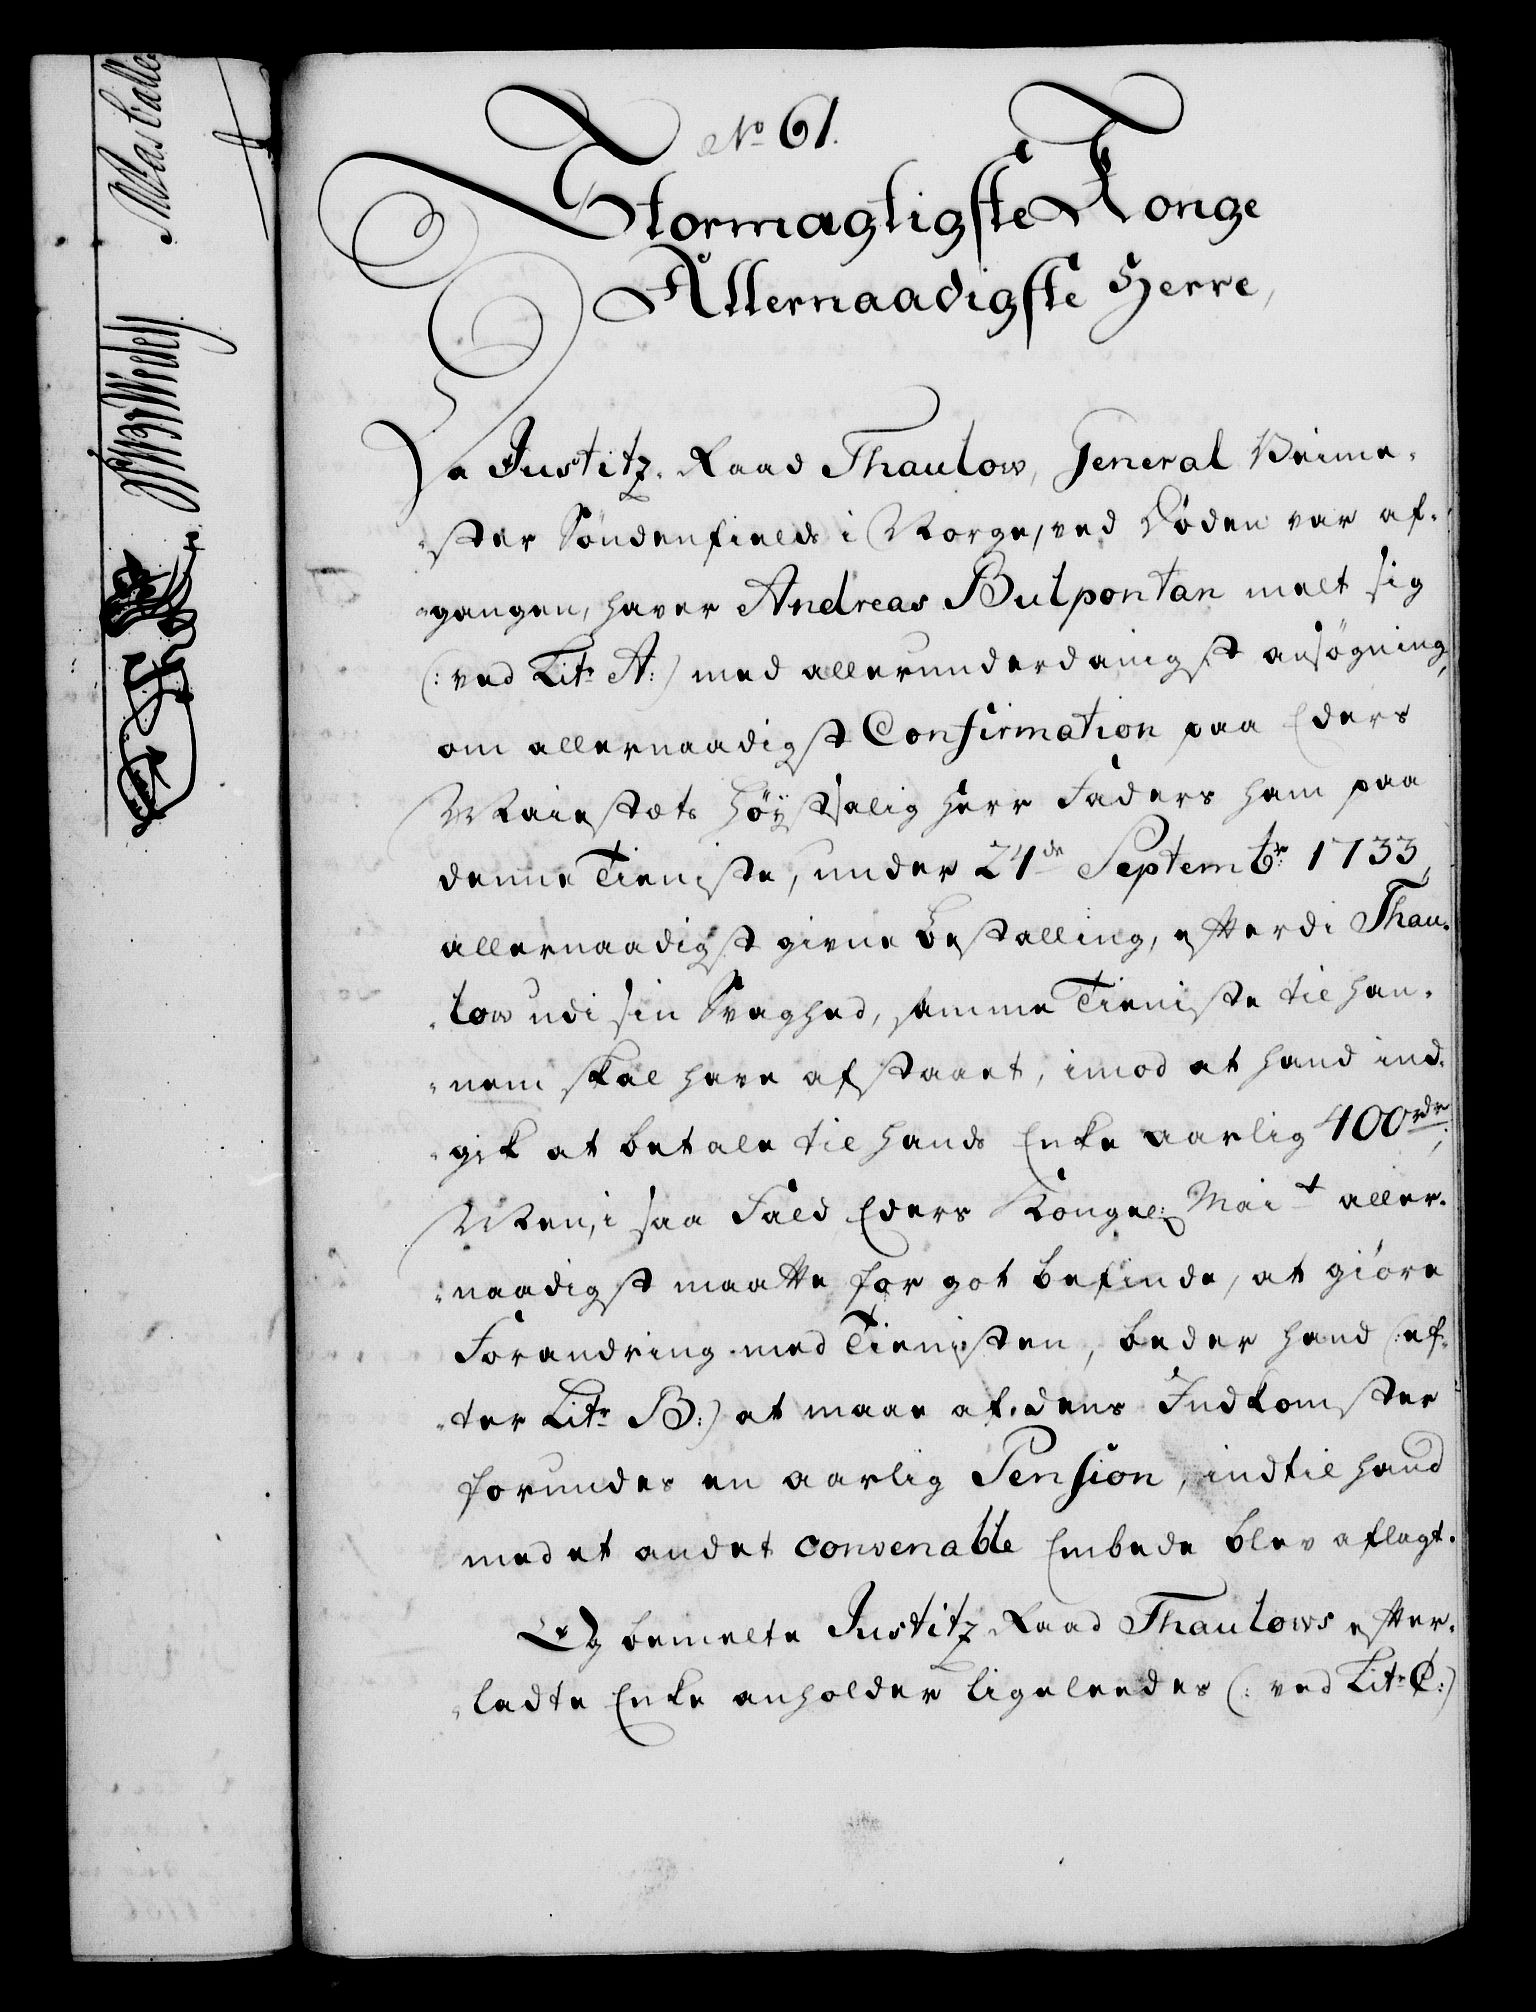 No 61.
Stormagtigste Konge
Allernaadigste Herre,
Da Justitz-Raad Thaulow, General Veime-
-ster Söndenfields i Norge, ved Døden var af-
-gangen, haver Andreas Bulpontan melt sig
(: ved Litr A:) med allerunderdanigst ansøgning,
om allernaadigst Confirmation paa Eders
Maiestæts Høystsalig Herr Faders ham paa
denne Tieniste, under 24de Septembr 1733,
allernaadigst givne Bestalling, efterdi Thau-
-low udi sin Svaghed, samme Tieniste til han-
-nem skal have afstaaet, imod at hand ind-
-gik at betale til hands Enke aarlig 400 rdr;
Men, i saa Fald Eders Kongel: Mait aller-
-naadigst maatte for got befinde, at giøre
Forandring med Tienisten, beder hand (:ef-
-ter Litr B:) at maae af dens Indkomster
forundes en aarlig Pension, indtil hand
med et andet convenable Embede blev aflagt.
Og bemelte Justitz Raad Thaulows efter-
-ladte Enke anholder ligeleedes (: ved Litr C:)